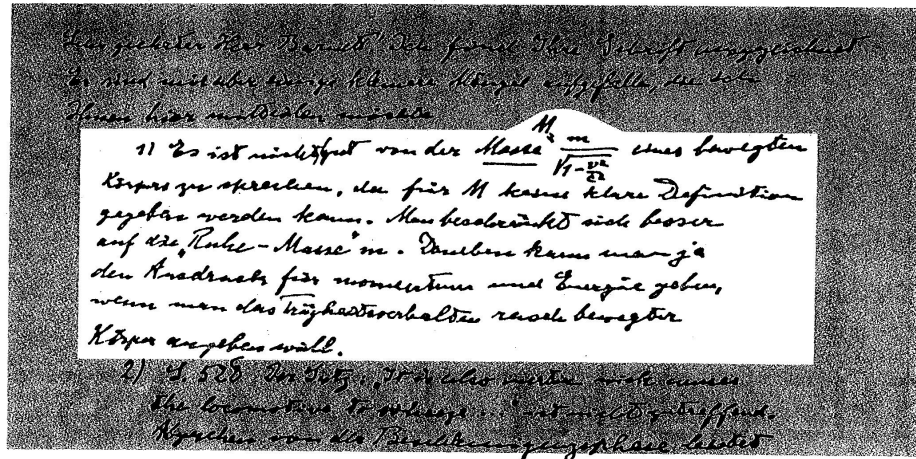 Sehr geehrter Herr Barnett! Ich fand Ihre Schrift ausgezeichnet.
Es sind mir aber einige kleine Mängel aufgefallen, die ich
Ihnen hier mitteilen möchte
1) Es ist nicht gut von der Masse M = m/√(1-v²/c²) eines bewegten
Körpers zu sprechen, da für M keine klare Definition
gegeben werden kann. Man beschränkt sich besser
auf die "Ruhe-Masse" m. Daneben kann man ja
den Ausdruck für momentum und Energie geben,
wenn man das Trägheitsverhalten rasch bewegter
Körper angeben will.
2) S. 528 Der Satz: "It is also
the locomotive to ... ist nicht zutreffend.
Abgesehen von der Beschleunigungsphase leistet